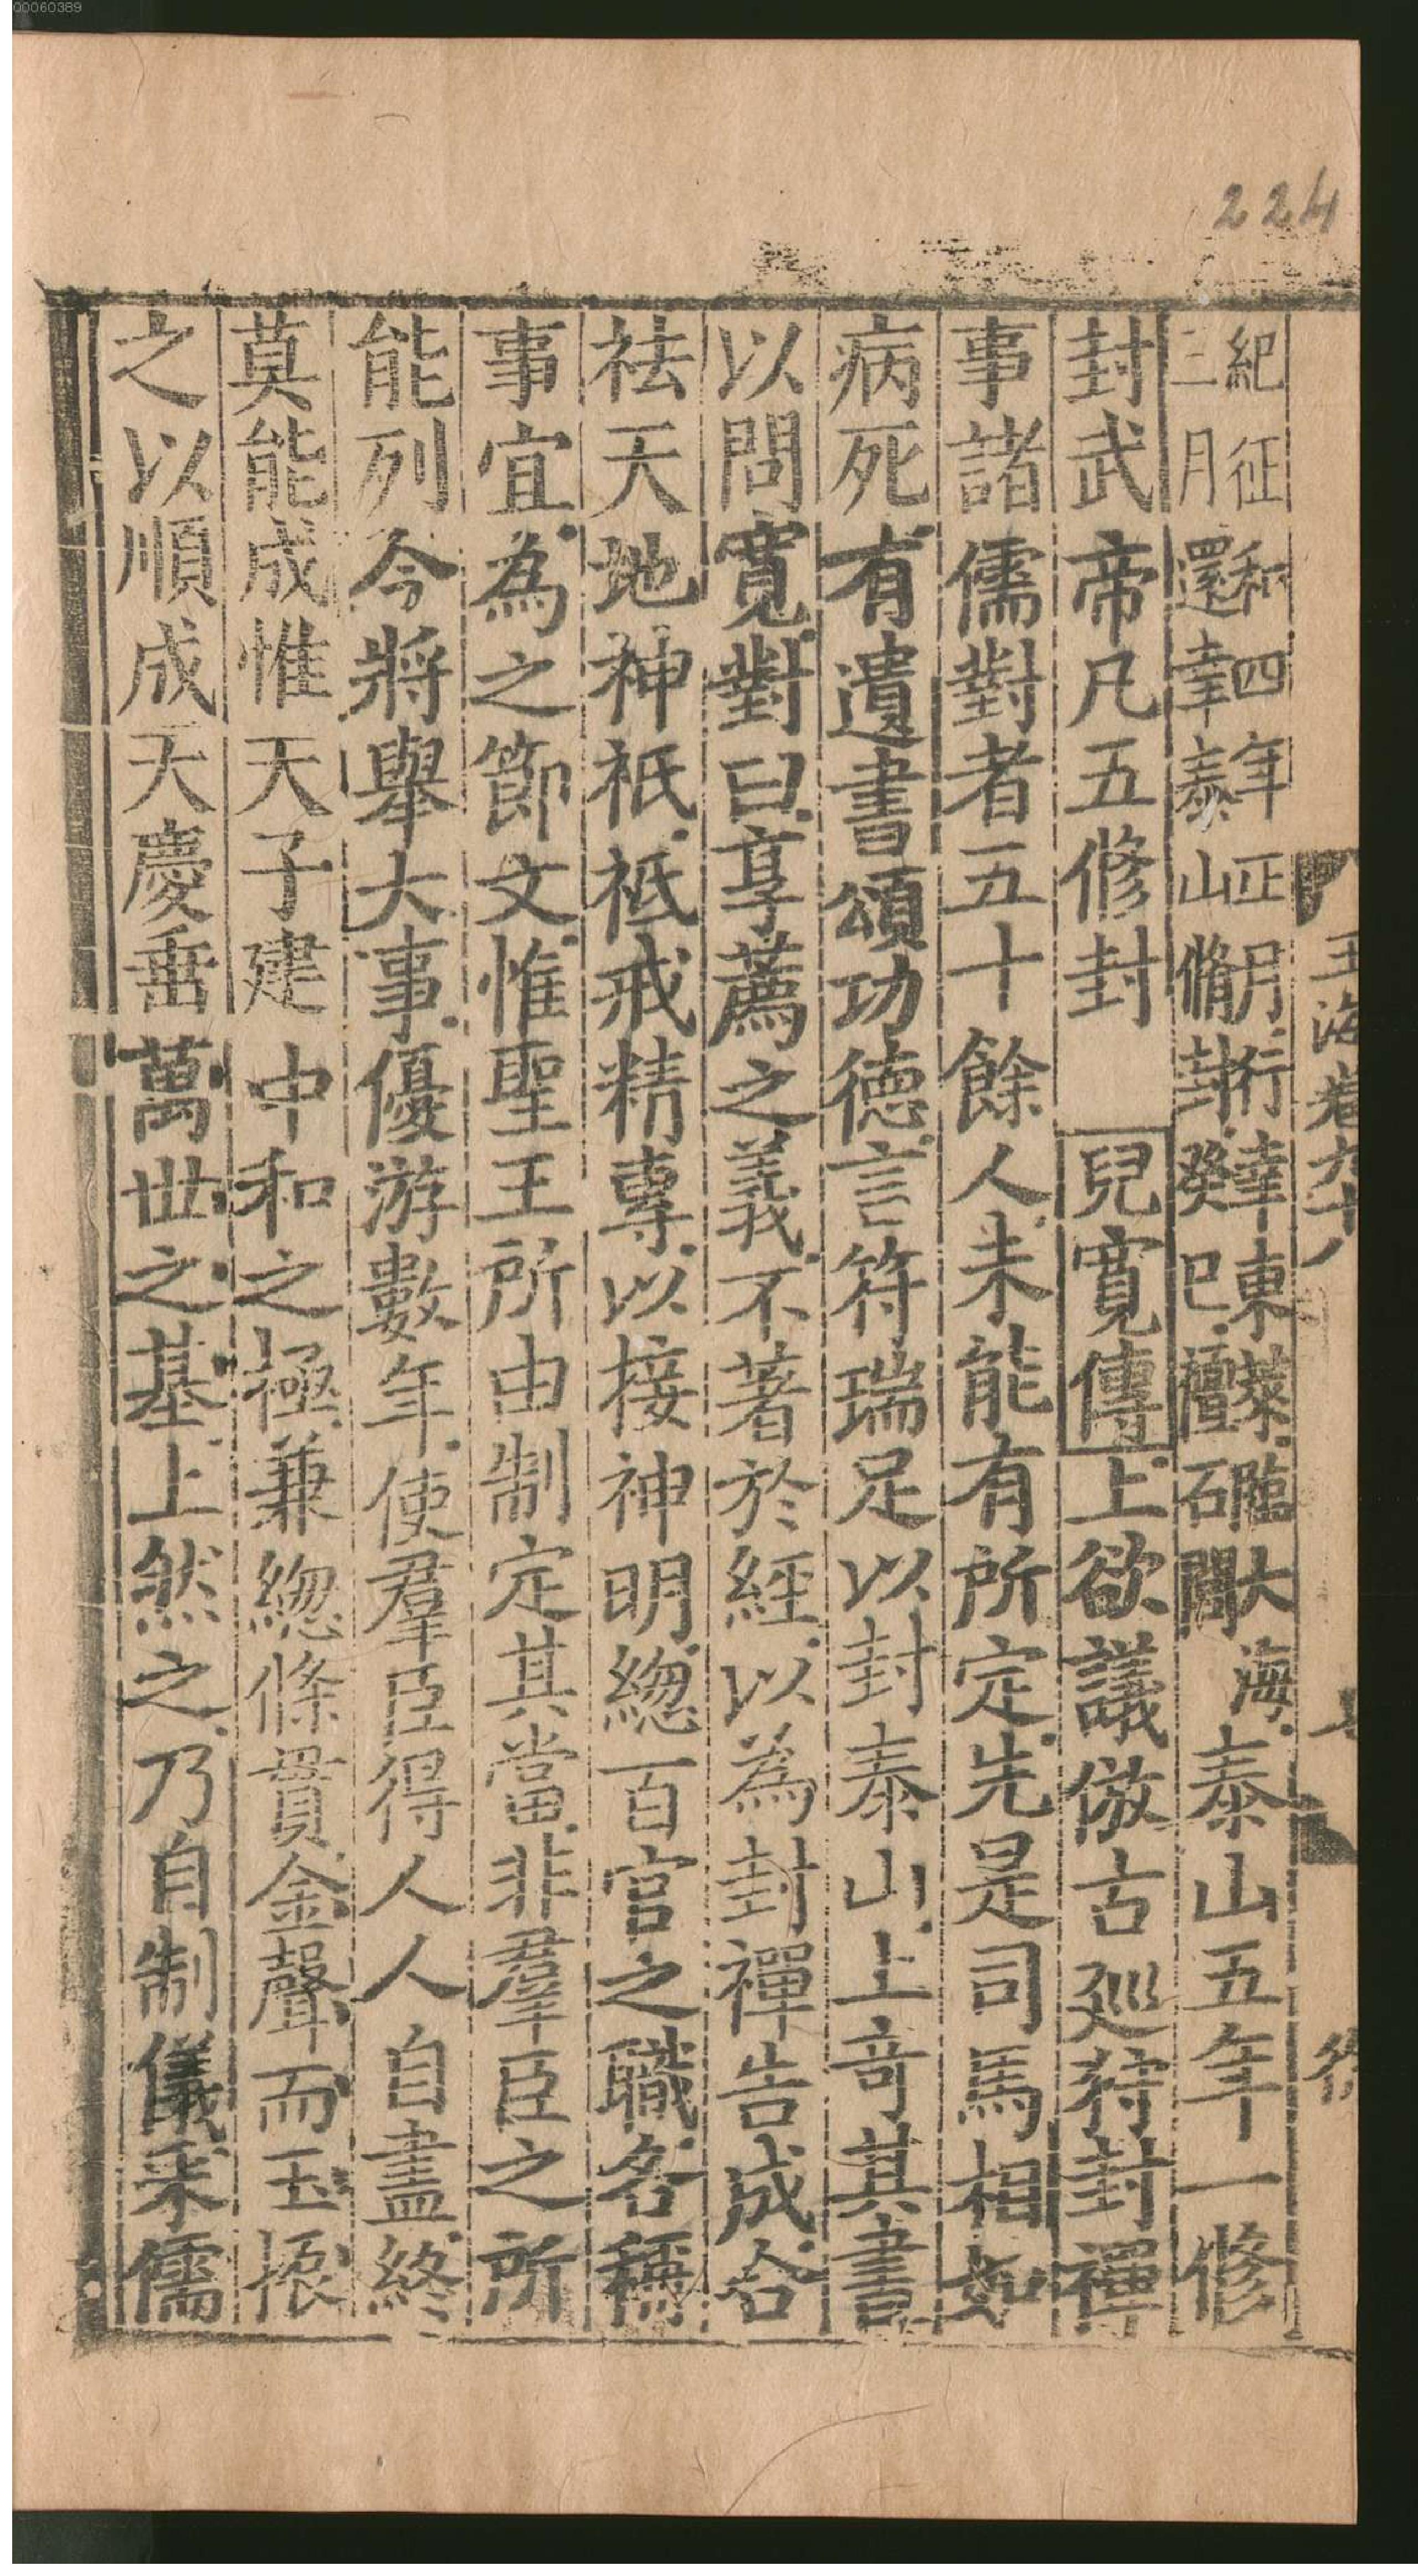 00060389
224
玉海卷九十八
紀征和四年正月行幸東萊臨大海
三月還幸泰山脩封癸巳禮石閭
泰山五年一修
封武帝凡五修封 兒寬傳上欲議倣古廵狩封禪
事諸儒對者五十餘人未能有所定先是司馬相如
病死有遺書頌功德言符瑞足以封泰山上竒其書
以問寬對曰享薦之義不著於經以為封禪告成合
祛天地神祇祗戒精專以接神明緫百官之職各稱
事宜為之節文惟聖王所由制定其當非羣臣之所
能列今將舉大事優游數年使羣臣得人人自盡終
莫能成惟天子建中和之極兼緫條貫金聲而玉振
之以順成天慶垂萬世之基上然之乃自制儀采儒